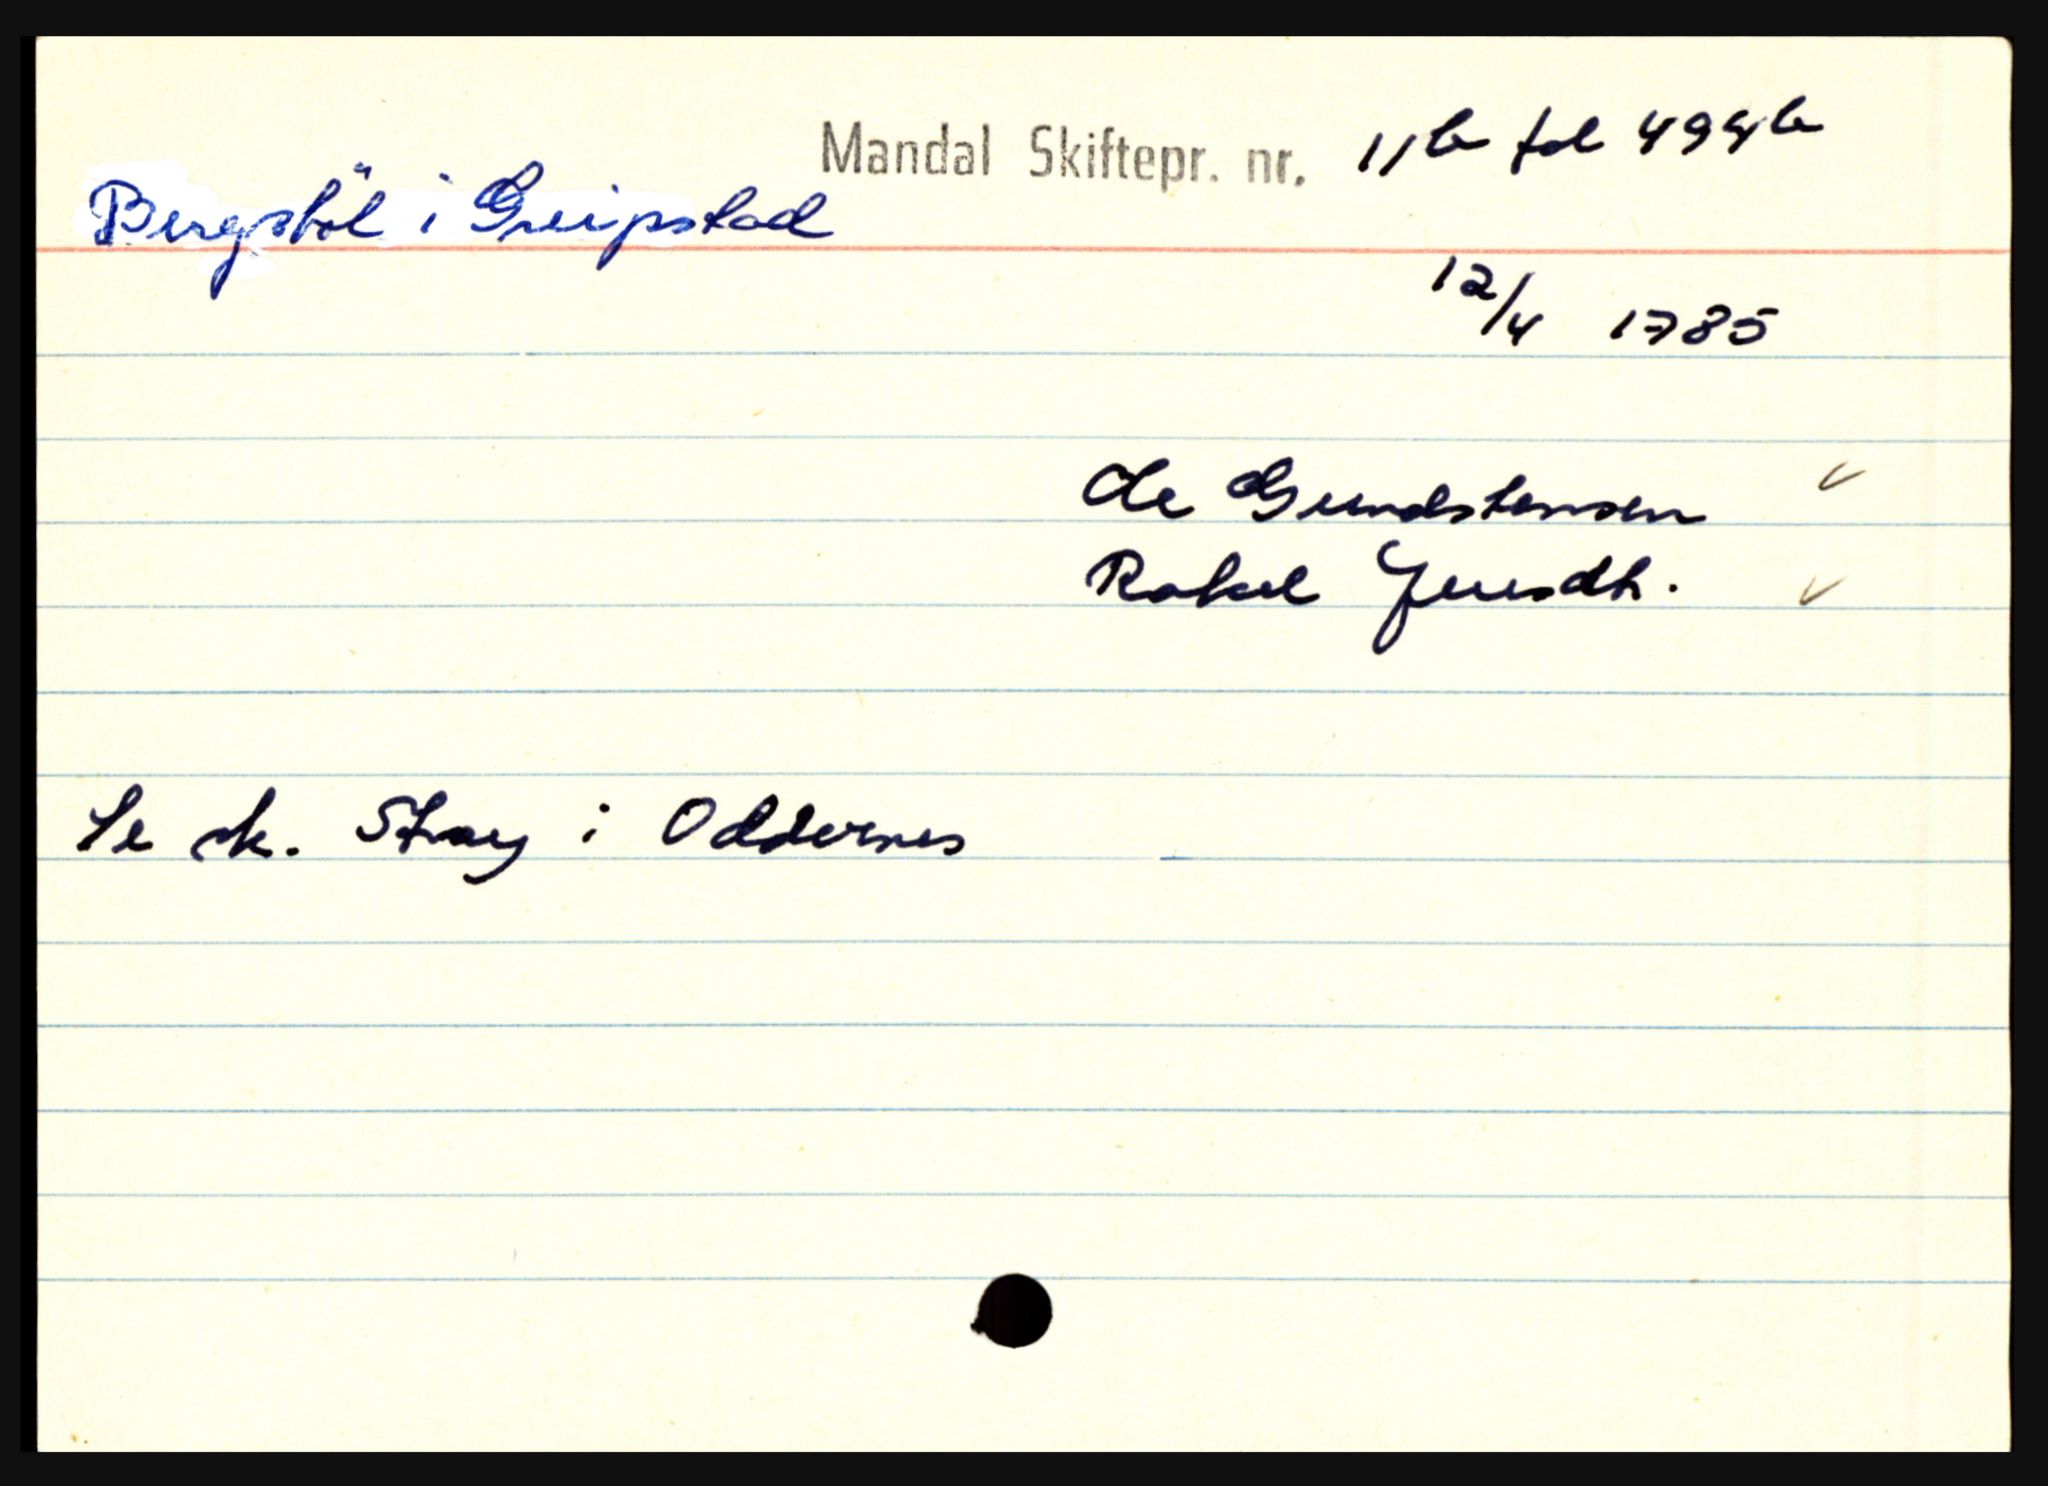 Mandal Skiftepr. nr. 11b fol 499b
Bergstöl i Greipstad
12/4 1785
Ole Gundstensen ✓
Rakel Jensdt. ✓
Se sk. Stray i Oddernes